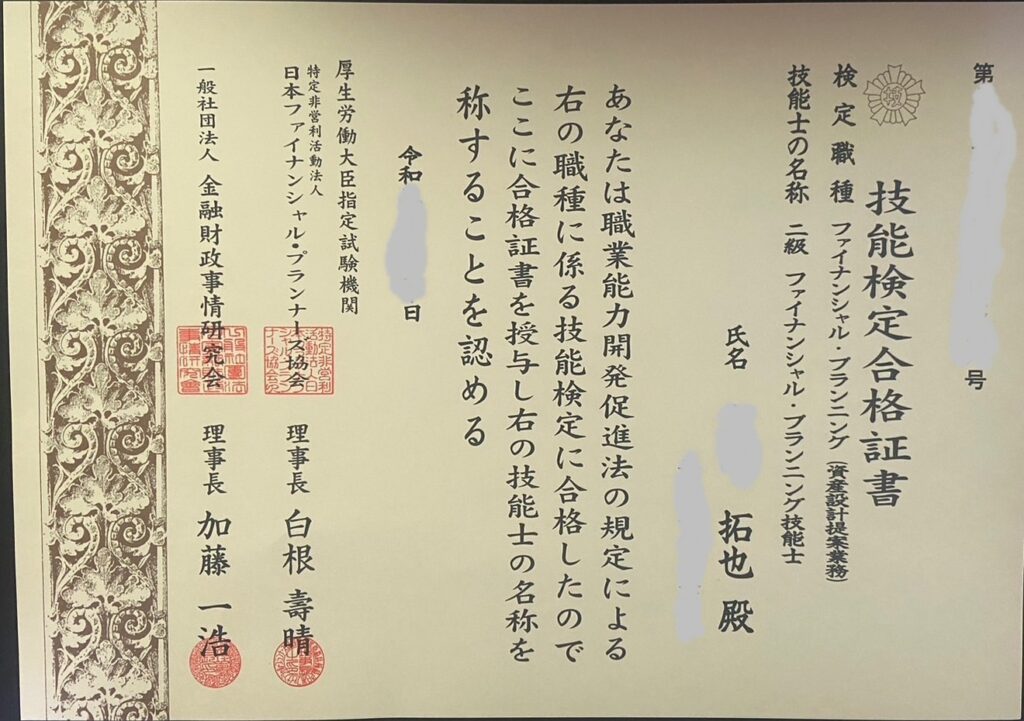 第
号
技能検定合格証書
検定職種 ファイナンシャル・プランニング(資産設計提案業務)
技能士の名称 二級 ファイナンシャル・プランニング技能士
氏名
拓也 殿
あなたは職業能力開発促進法の規定による
右の職種に係る技能検定に合格したので
ここに合格証書を授与し右の技能士の名称を
称することを認める
令和
日
厚生労働大臣指定試験機関
特定非営利活動法人
日本ファイナンシャル・プランナーズ協会 理事長 白根 壽晴
一般社団法人 金融財政事情研究会 理事長 加藤 一浩